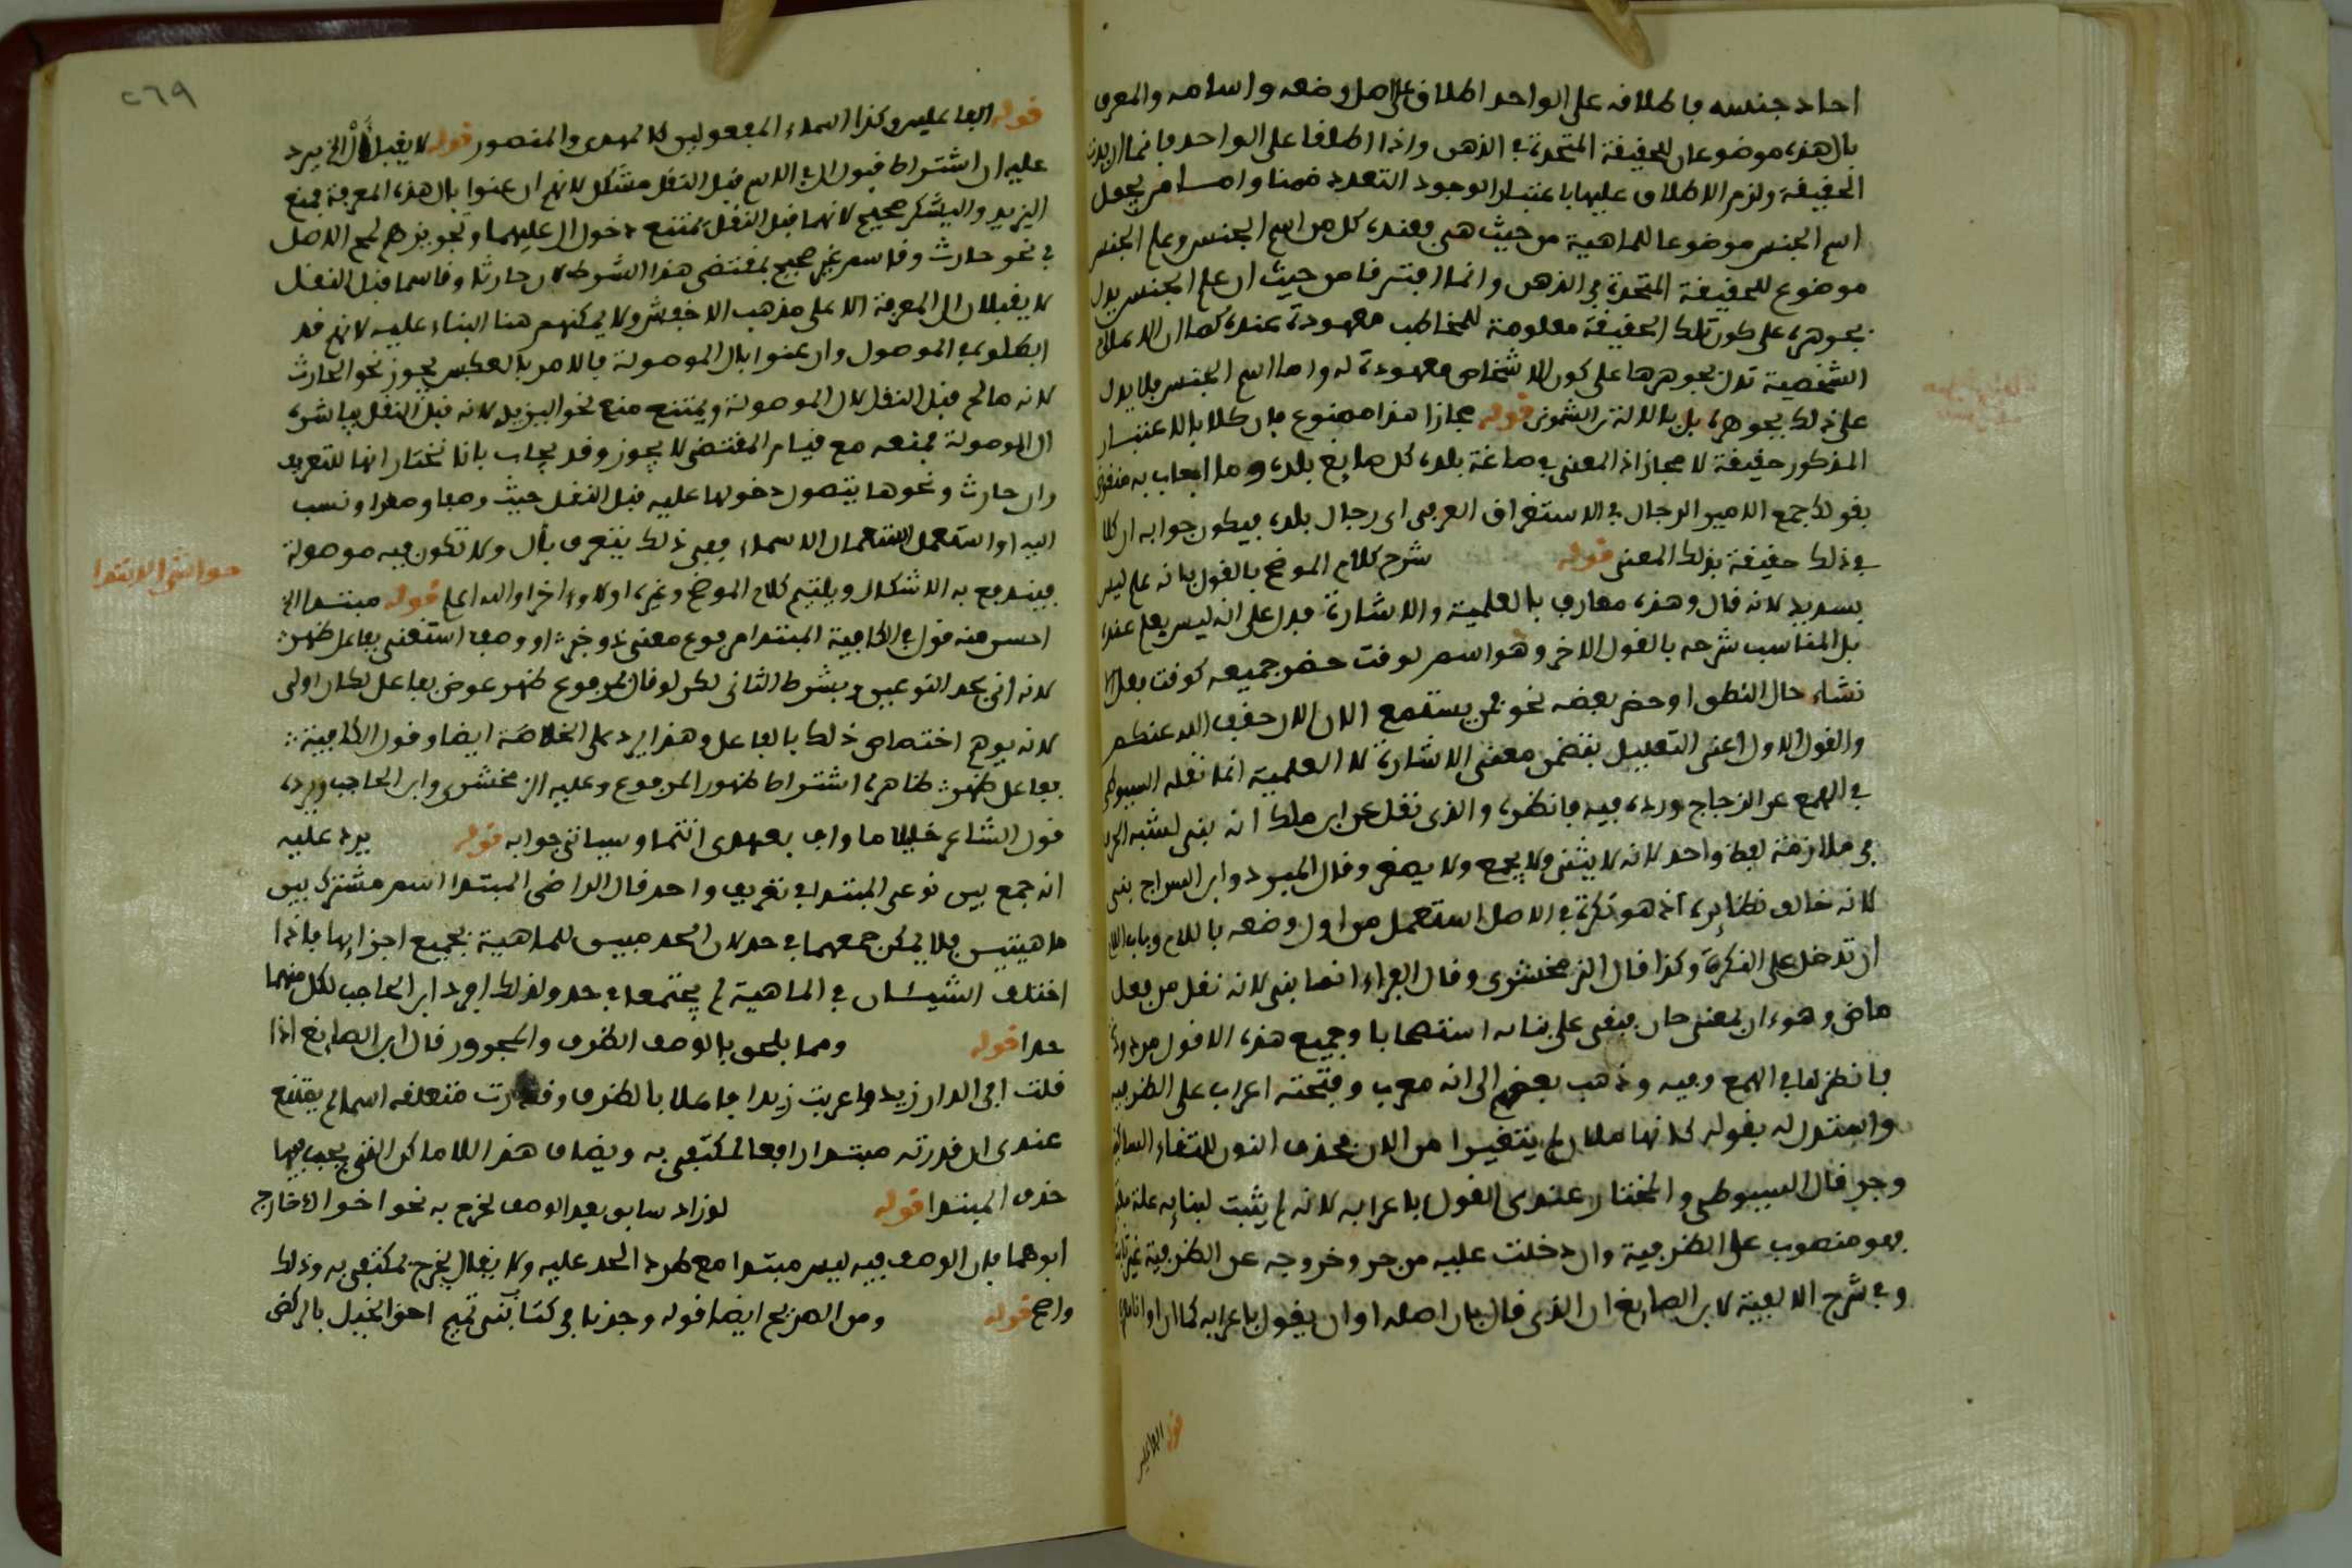 احاد جنسه فاطلاقه على الواحد اطلاق على اصل وضعه واسامة والمعرف
بال هذه موضوعان للحقيقة المتحدة في الذهن واذا اطلقا على الواحد فانما اريدت
الحقيقة ولزم الاطلاق عليها باعتبار الوجود التعدد ضمنا واما من يجعل
اسم الجنس موضوعا للماهية من حيث هي فعنده كل من اسم الجنس وعلم الجنس
موضوع للحقيقة المتحدة في الذهن وانما افترقا من حيث ان علم الجنس يدل
بجوهره على كون تلك الحقيقة معلومة للمخاطب معهودة عنده كما ان الاعلام
الشخصية تدل بجوهرها على كون الاشخاص معهودة له واما اسم الجنس فلا يدل
على ذلك بجوهره بل بالالة قوله مجازا هذا ممنوع فان كلا بالاعتبار
المذكور حقيقة لا مجاز اذ المعنى في صاغة بلده كل صايغ بلده وما اجاب به منقوض
بقولك جمع الامير الرجال في الاستغراق العرفي اي رجال بلده فيكون جوابه ان كلا
في ذلك حقيقة بذلك المعنى قوله شرح كلام الموضح بالقول بانه علم ليس
بسديد لانه قال وهذه معارف بالعلمية والاشارة فدل على انه ليس بعلم عنده
بل المناسب شرحه بالقول الاخر وهو اسم لوقت حضر جميعه كوقت فعل الا
نشاء حال النطق او حضر بعضه نحو فمن يستمع الان الان خفف الله عنكم
والقول الاول اعني التعليل بتضمن معنى الاشارة لا العلمية انما نقله السيوطي
في الهمع عن الزجاج ورده فيه فانظره والذي نقل عن ابن مالك انه بني لشبه الحرف
في ملازمة لفظ واحد لانه لا يثنى ولا يجمع ولا يصغر وقال المبرد وابن السراج بني
لانه خالف نظايره اذ هو نكرة في الاصل استعمل من اول وضعه باللام وباب اللام
ان تدخل على النكرة وكذا قال الزمخشري وقال الفراء انما بني لانه نقل من فعل
ماض وهو ان بمعنى حان فبقي على بنايه استصحابا وجميع هذه الاقوال مردودة
فانظرها في الهمع وفيه وذهب بعضهم الى انه معرب وفتحته اعراب على الظرفية
واستدل له بقوله كانهما ملان لم يتغيرا من الان فحذف النون لالتقاء الساكنين
وجر قال السيوطي والمختار عندي القول باعرابه لانه لم يثبت لبنايه علة
فهو منصوب على الظرفية وان دخلت عليه من جر وخروجه عن الظرفية غير ثابت
وفي شرح الالفية لابن الصايغ ان الذي قال بان اصله اوان يقول باعرابه كما ان اوانا
قوله الفاعلين
٢٦٩
قوله الفاعلين وكذا اسماء المفعولين كالمهدى والمنصور قوله لا يقبل أل الخ يرد
عليه ان اشتراط قبول ال في الاسم قبل النقل مشكل لانهم ان عنوا بال هذه المعرفة فمنع
اليزيد واليشكر صحيح لانهما قبل النقل يمتنع دخول ال عليهما وتجويزهم لمح الاصل
في نحو حارث وقاسم غير صحيح بمقتضى هذا الشرط لان حارثا وقاسما قبل النقل
لا يقبلان ال المعرفة الا على مذهب الاخفش ولا يمكنهم هنا البناء عليه لانهم قد
ابطلوه في الموصول وان عنوا بال الموصولة فالامر بالعكس يجوز نحو الحارث
لانه صالح قبل النقل لال الموصولة ويمتنع منع نحو اليزيد لانه قبل النقل يباشره
ال الموصولة فمنعه مع قيام المقتضي لا يجوز وقد يجاب بانا نختار انها للتعريف
وان حارث ونحوها يتصول دخولها عليه قبل النقل حيث وصفا ومفرا ونسب
اليه او استعمل استعمال الاسماء ففي ذلك يتعرف بأل ولا تكون فيه موصولة
فيندفع به الاشكال ويلتيم كلام الموضح وغيره اولا واخرا والله اعلم قوله مبتدا الخ
حواشي الابتدا
احسن منه قول الكافية المبتدا مرفوع معنى ذو خبر او وصف استغنى بفاعل ظهر
لانه اتى بحد النوعين وبشرط الثاني لكن لو قال بمرفوع ظهر عوض بفاعل لكان اولى
لانه يوهم اختصاص ذلك بالفاعل وهذا يرد على الخلاصة ايضا وقول الكافية
بفاعل ظهر ظاهره اشتراط ظهور المرفوع وعليه الزمخشري وابن الحاجب ويرده
قول الشاعر خليلي ما واف بعهدي انتما وسياتي جوابه قوله يرد عليه
انه جمع بين نوعي المبتدا في تعريف واحد قال الراضي المبتدا اسم مشترك بين
ماهيتين فلا يمكن جمعهما في حد لان الحد مبين للماهية بجميع اجزايها فاذا
اختلف الشيئان في الماهية لم يجتمعا في حد ولذلك افرد ابن الحاجب لكل منهما
حدا قوله ومما يلحق بالوصف الظرف والمجرور قال ابن الصايغ اذا
قلت افي الدار زيد واعربت زيدا فاعلا بالظرف وقدرت متعلقه اسما لم يمتنع
عندي ان قدرته مبتدا رافعا لمكتفى به ويضاف هذا للاماكن التي يجب فيها
حذف المبتدا قوله لو زاد سابق بعد الوصف لخرج به نحو اخواك خارج
ابوهما فان الوصف فيه ليس مبتدا مع طرد الحد عليه ولا يقال يخرج بمكتفى به وذلك
واضح قوله ومن الصريح ايضا قوله وجدنا في كتاب بني تميم احق الخيل بالركض